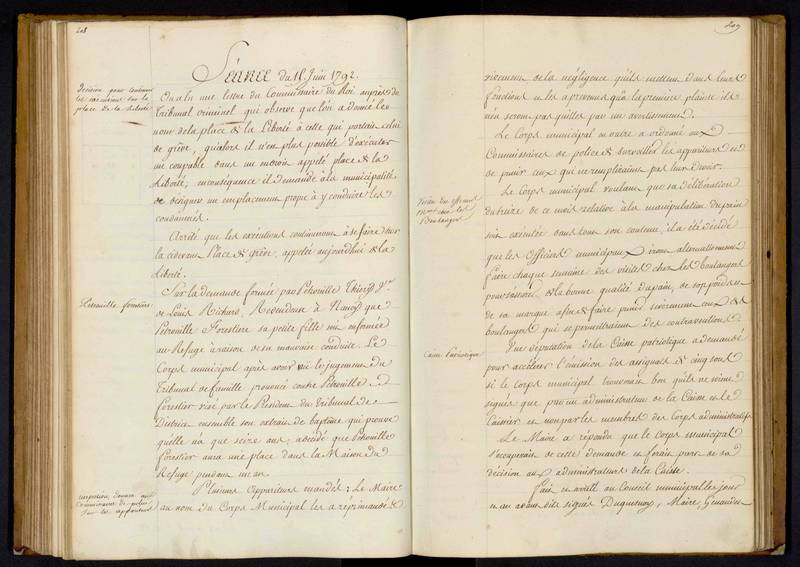 208
Séance du 11 Juin 1792.
Décision pour continuer
les exécutions sur la
place de la Liberté
On a lu une lettre du Commissaire du Roi auprès du
Tribunal criminel qui observe que l'on a donné le
nom de la place de la Liberté à celle qui portait celui
de grève, qu'alors il n'en plus possible d'exécuter
un coupable dans un endroit appelé place de la
Liberté; en conséquence il demande à la municipalité
de designer un emplacement propre à y conduire les
condamnés.
Arrêté que les exécutions continueront à se faire sur
la cidevant Place de grève, appelée aujourd'hui de la
Liberté.
Petronille forestier
Sur la demande formée par Pétronille Thiéry
de Louis Richard, Revendeuse à Nancy que
Pétronille Forestier sa petite fille soit enfermée
au Refuge à raison de sa mauvaise conduite. Le
Corps municipal après avoir vu le jugement du
Tribunal de famille prononcé contre Pétronille
forestier visé par le Président du Tribunal de
District ensemble son extrait de baptême qui prouve
qu'elle n'a que seize ans, a décidé que Pétronille
forestier aura une place dans la Maison du
Refuge pendant un an.
Commissaires de police
sur les appariteurs
Plusieurs Appariteurs mandés; Le Maire
au nom du Corps Municipal les a réprimandé
209
de la négligence qu'ils mettent dans leurs
fonctions et les a prévenus qu'à la première plainte ils
n'en seront pas quittes par un avertissement.
Le Corps municipal en outre a ordonné aux
Commissaires de police de surveiller les appariteurs et
de punir ceux qui ne rempliraient pas leur devoir.
chez les
Boulangers
Le Corps municipal voulant que sa délibération
du treize de ce mois relative à la manipulation du pain
soit exécutée dans tout son contenu, il a été décidé
que les Officiers municipaux iront alternativement
faire chaque semaine des visites chez les boulangers
pour s'assurer de la bonne qualité du pain, de son poids et
de sa marque afin de faire punir sévèrement ceux des
boulangers qui se permettraient des contraventions.
Caisse Patriotique
Une députation de la Caisse patriotique a demandé
pour accélérer l'émission des assignats de cinq sous
si le Corps municipal trouverait bon qu'ils ne soient
signés que par un administrateur de la Caisse et le
Caissier et non par les membres des Corps administratifs
Le Maire a répondu que le Corps municipal
s'occuperait de cette demande et ferait part de sa
décision aux administrateurs de la Caisse.
Fait et arrêté au Conseil municipal les jour
et an avant dits signés Duquesnoy, Maire,